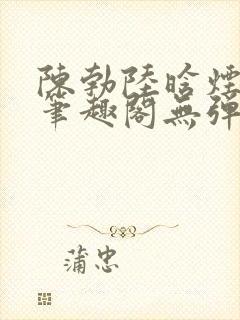 陳勃陸晗煙
筆趣閣無彈
蒲忠